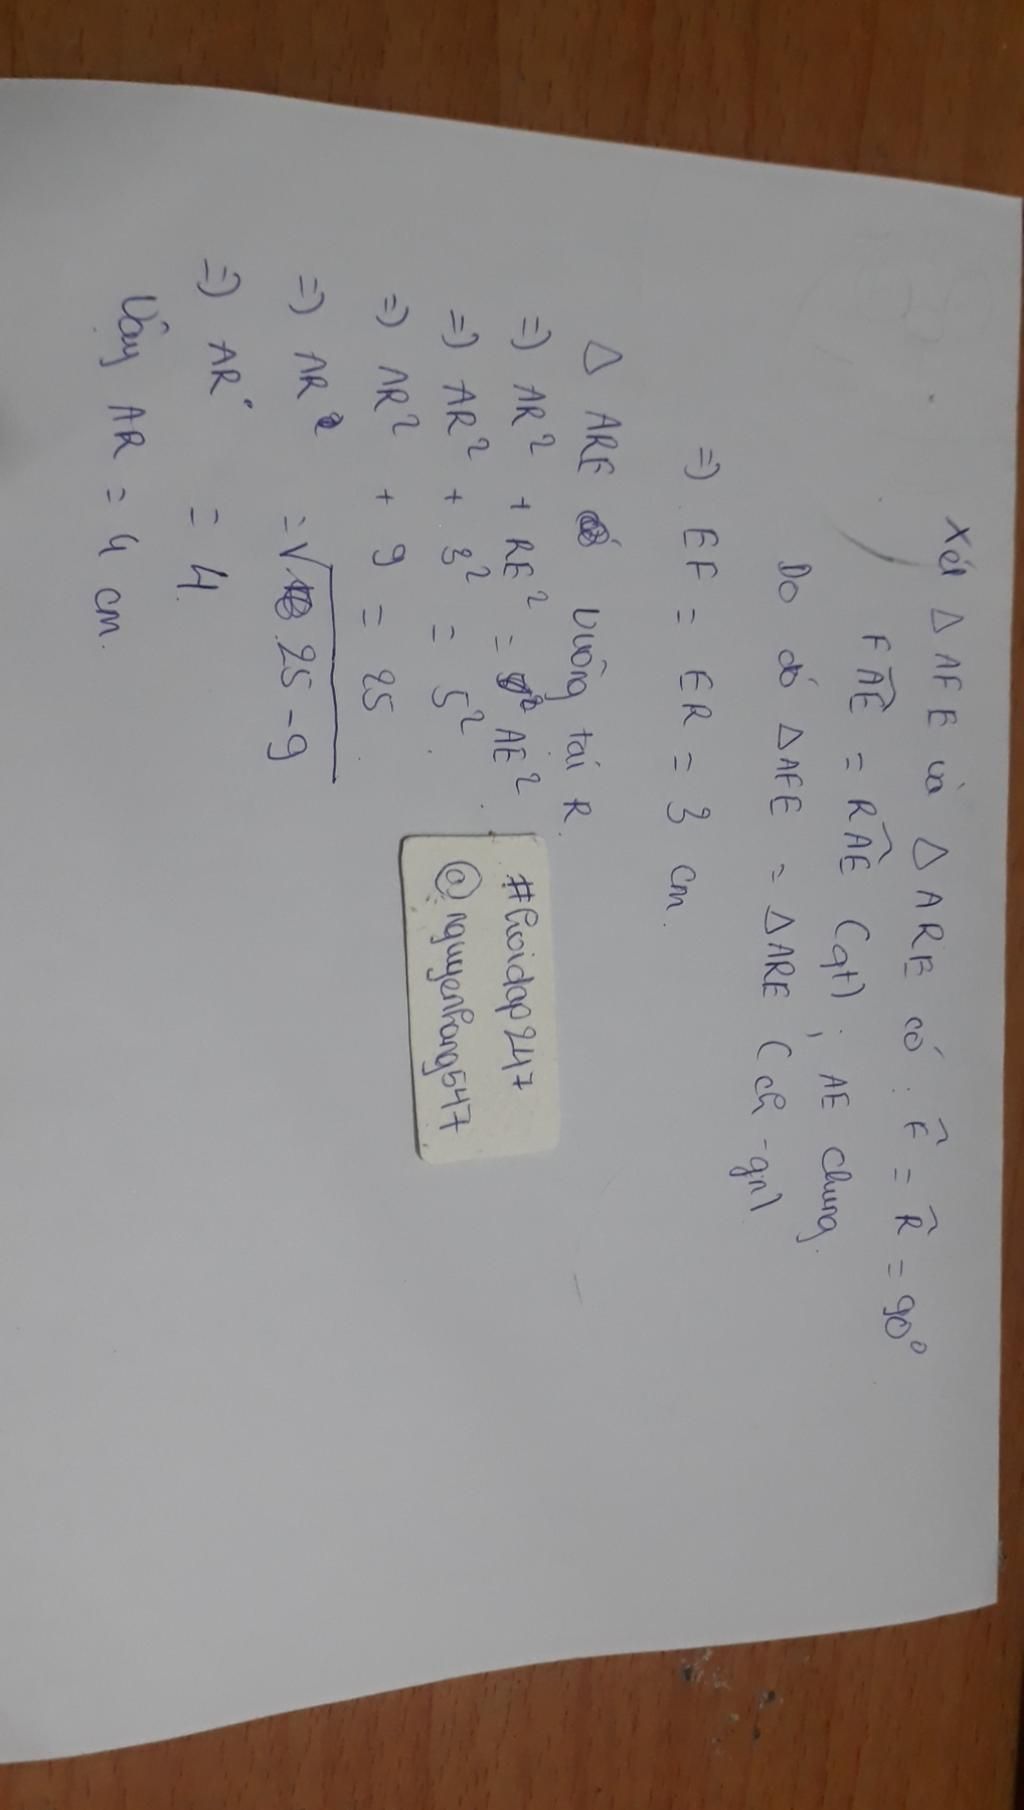 Xét Δ AFE và Δ ARE có : F̂ = R̂ = 90°
FÂE = RÂE (gt) ; AE chung.
Do đó Δ AFE = Δ ARE (ch - gn)
=) EF = ER = 3 cm.
Δ ARE vuông tại R.
=) AR² + RE² = AE²
=) AR² + 3² = 5²
=) AR² + 9 = 25
=) AR = √25 - 9
=) AR = 4
Vậy AR = 4 cm.
#hoidap247
@nguyenhang547